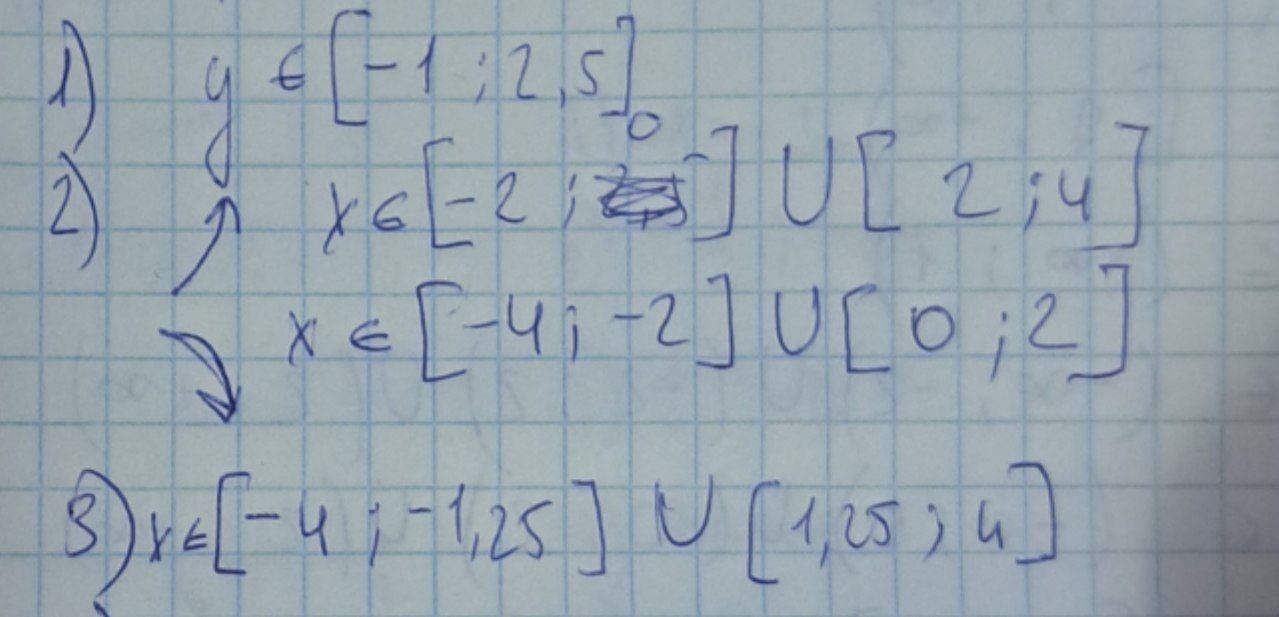 1) y ∈ [-1 ; 2,5]
2) ↗ x ∈ [-2 ; 0] ∪ [2 ; 4]
↘ x ∈ [-4 ; -2] ∪ [0 ; 2]
3) x ∈ [-4 ; -1,25] ∪ [1,25 ; 4]